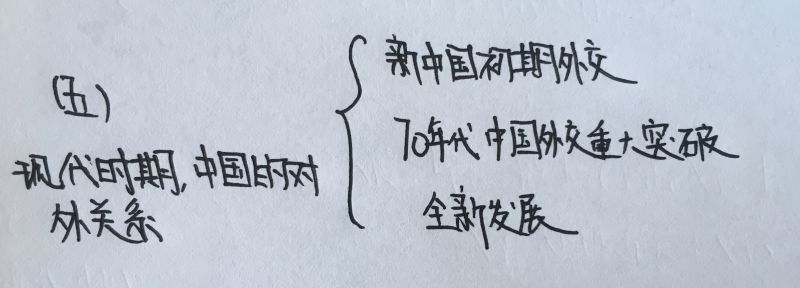 (五)
现代时期,中国的对
外关系
新中国初期外交
70年代中国外交重大突破
全新发展